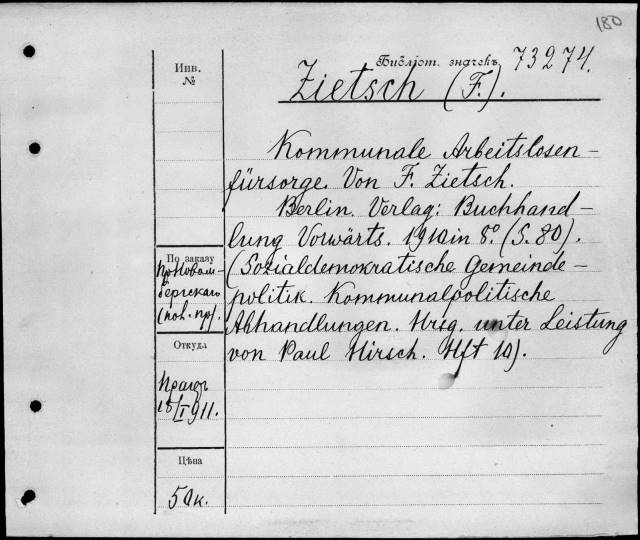 180
Библіот. значекъ 73274.
Zietsch (F.).
Инв.
№
Kommunale Arbeitslosen-
fürsorge. Von F. Zietsch.
Berlin. Verlag: Buchhand-
lung Vorwärts. 1910 in 8º. (S. 80).
(Sozialdemokratische Gemeinde-
politik. Kommunalpolitische
Abhandlungen. Hrsg. unter Leistung
von Paul Hirsch. Hft 10).
По заказу
Откуда
18/I 911.
Цѣна
50к.